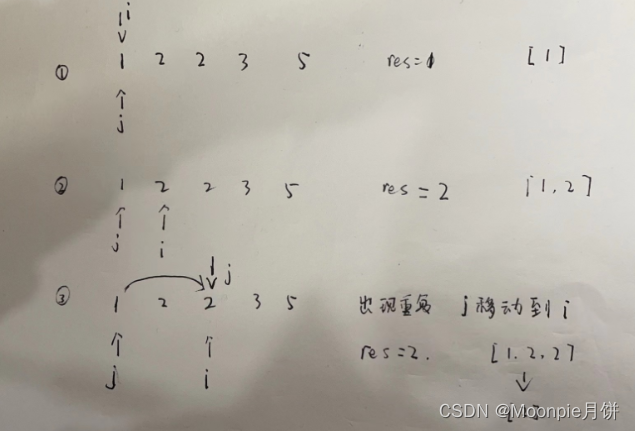 i
① 1 2 2 3 5 res=1 [1]
j
② 1 2 2 3 5 res=2 [1,2]
j i
j
③ 1 2 2 3 5 出现重复 j移动到i
res=2. [1,2,2]
j i
CSDN @Moonpie月饼